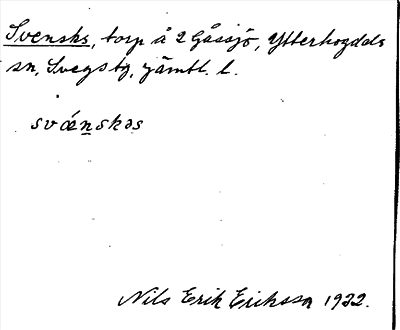 Svensks, torp å 2 Gåssjö, Ytterhogdals
sn, Svegs tg, Jämtl. l.
svǽnskəs
Nils Erik Eriksson 1932.